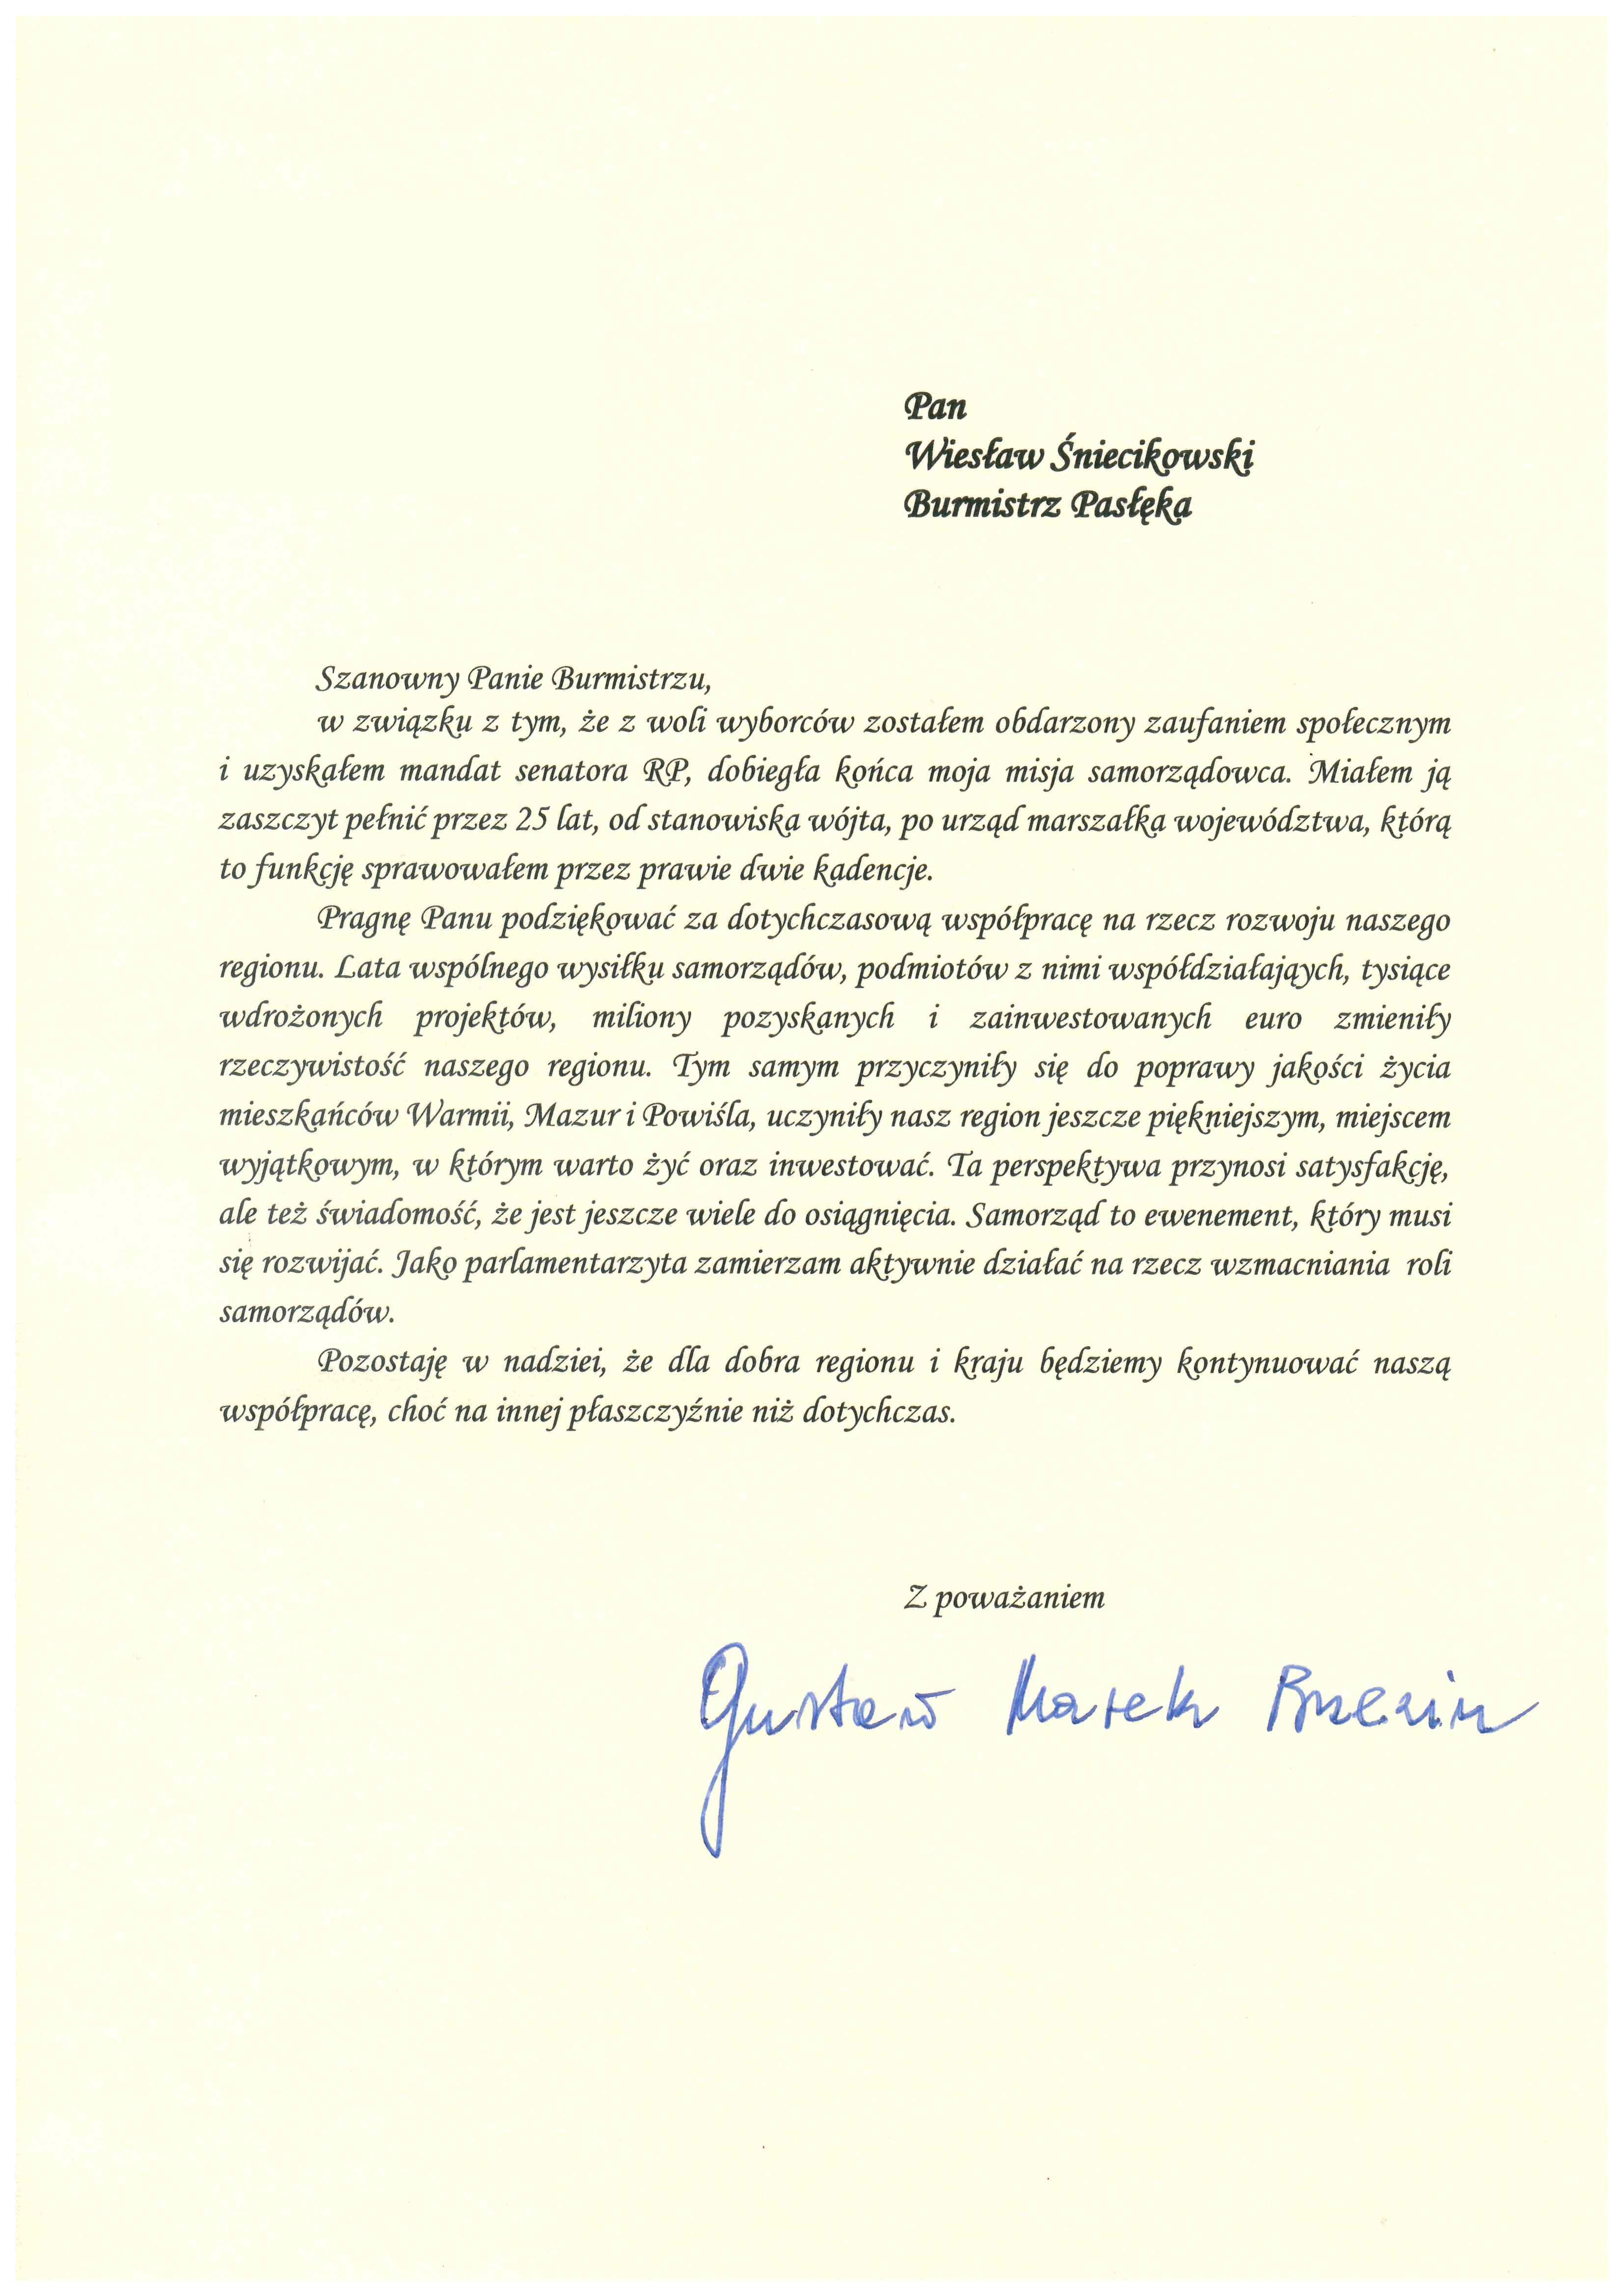 Pan
Wiesław Śniecikowski
Burmistrz Pasłęka
Szanowny Panie Burmistrzu,
w związku z tym, że z woli wyborców zostałem obdarzony zaufaniem społecznym
i uzyskałem mandat senatora RP, dobiegła końca moja misja samorządowca. Miałem ją
zaszczyt pełnić przez 25 lat, od stanowiska wójta, po urząd marszałka województwa, którą
to funkcję sprawowałem przez prawie dwie kadencje.
Pragnę Panu podziękować za dotychczasową współpracę na rzecz rozwoju naszego
regionu. Lata wspólnego wysiłku samorządów, podmiotów z nimi współdziałająych, tysiące
wdrożonych projektów, miliony pozyskanych i zainwestowanych euro zmieniły
rzeczywistość naszego regionu. Tym samym przyczyniły się do poprawy jakości życia
mieszkańców Warmii, Mazur i Powiśla, uczyniły nasz region jeszcze piękniejszym, miejscem
wyjątkowym, w którym warto żyć oraz inwestować. Ta perspektywa przynosi satysfakcję,
ale też świadomość, że jest jeszcze wiele do osiągnięcia. Samorząd to ewenement, który musi
się rozwijać. Jako parlamentarzyta zamierzam aktywnie działać na rzecz wzmacniania roli
samorządów.
Pozostaję w nadziei, że dla dobra regionu i kraju będziemy kontynuować naszą
współpracę, choć na innej płaszczyźnie niż dotychczas.
Z poważaniem
Gustaw Marek Brzezin